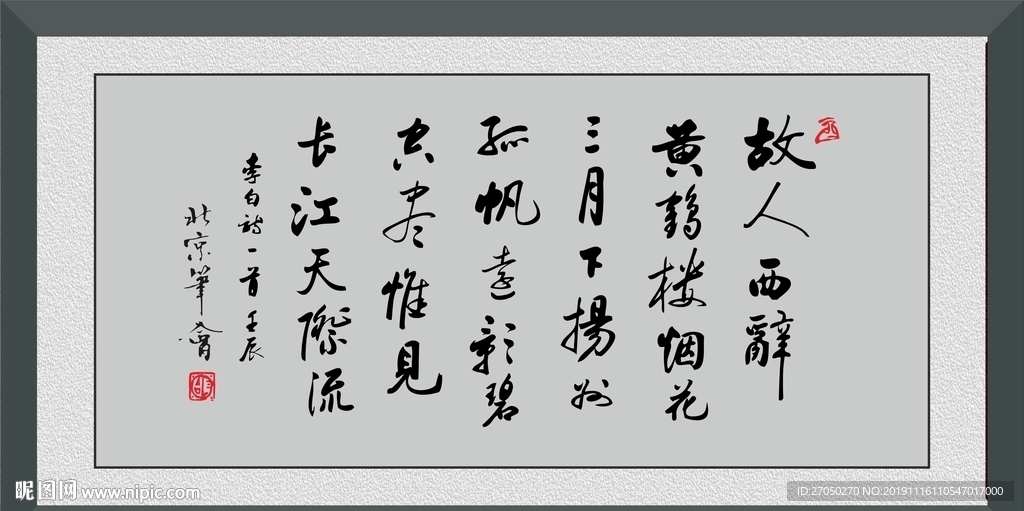 故人西辭
黄鶴楼烟花
三月下揚州
孤帆遠影碧
空尽惟見
长江天際流
李白詩一首 壬辰
北京筆會
昵图网 www.nipic.com
ID:27050270 NO:20191116110547017000